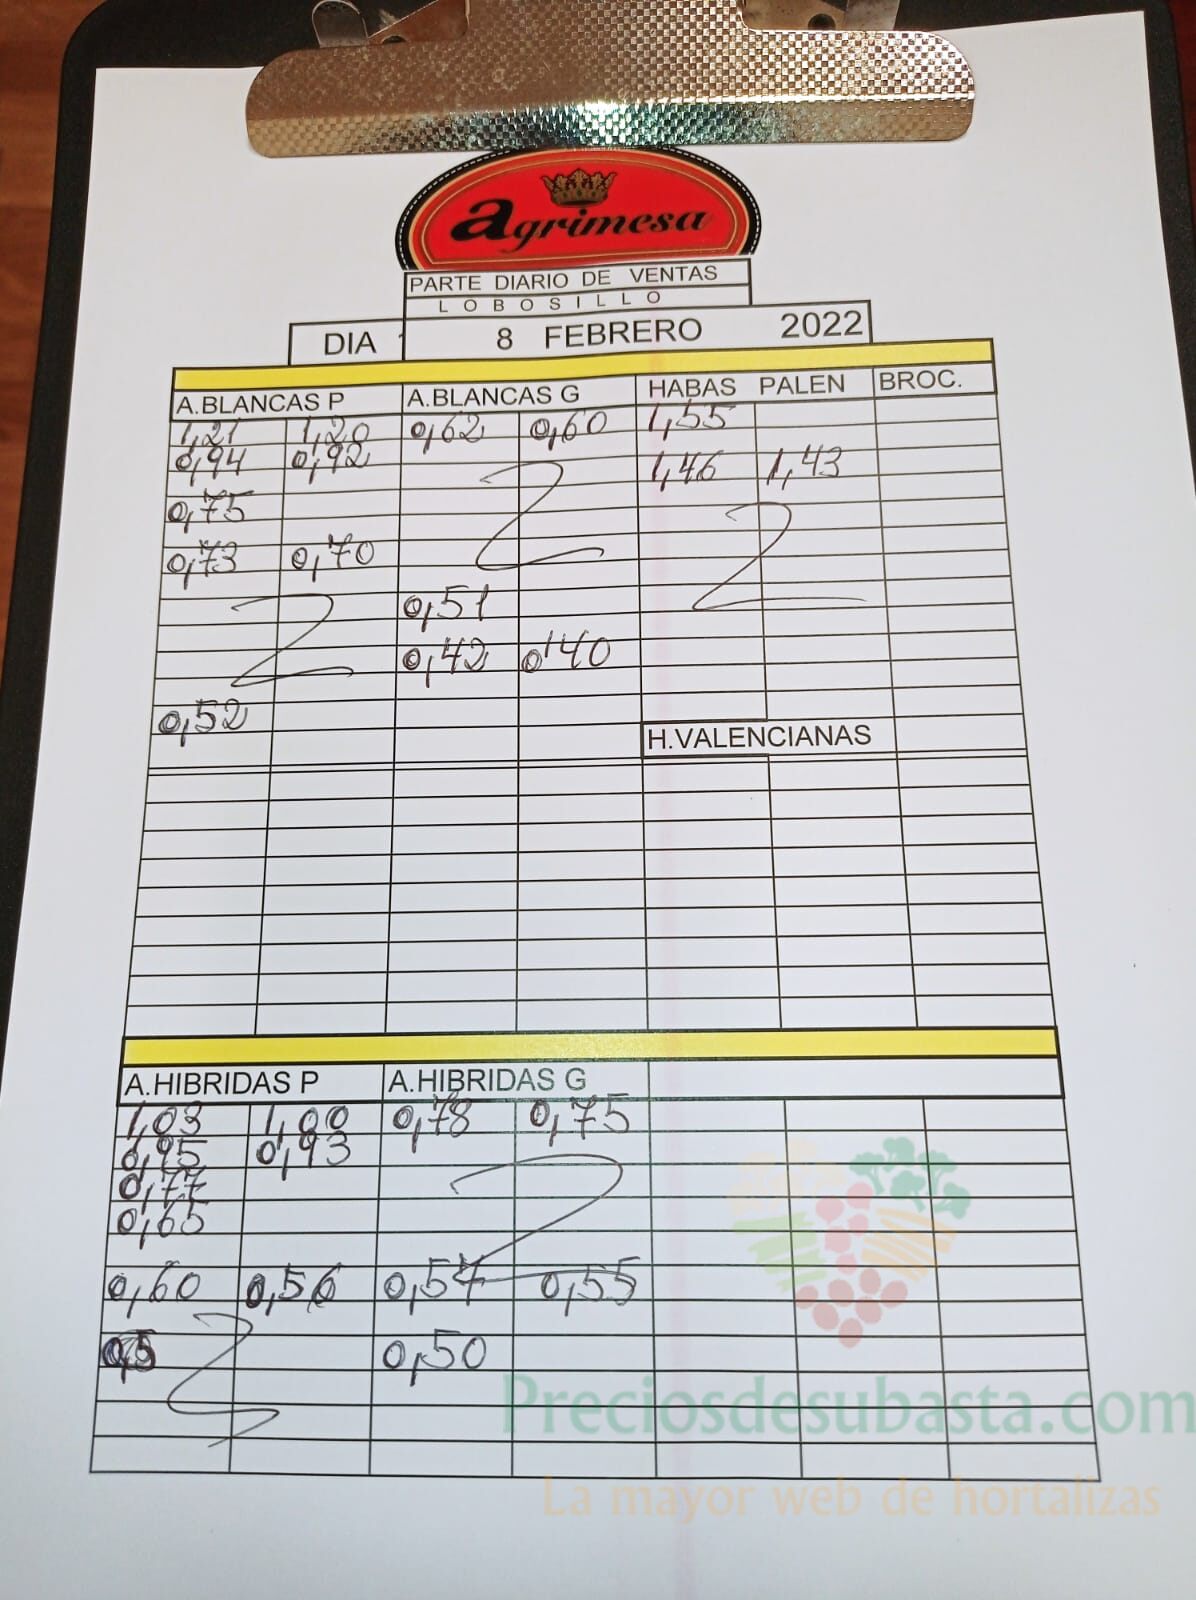 agrimesa
PARTE DIARIO DE VENTAS
LOBOSILLO
DIA 8 FEBRERO 2022
A.BLANCAS P A.BLANCAS G HABAS PALEN BROC.
1,21 1,20 0,62 0,60 1,55
0,94 0,92 1,46 1,43
0,75
0,73 0,70
0,51
0,42 0,40
0,52
H.VALENCIANAS
A.HIBRIDAS P A.HIBRIDAS G
1,03 1,00 0,78 0,75
0,95 0,93
0,77
0,65
0,60 0,56 0,57 0,55
0,50
Preciosdesubasta.com
La mayor web de hortalizas